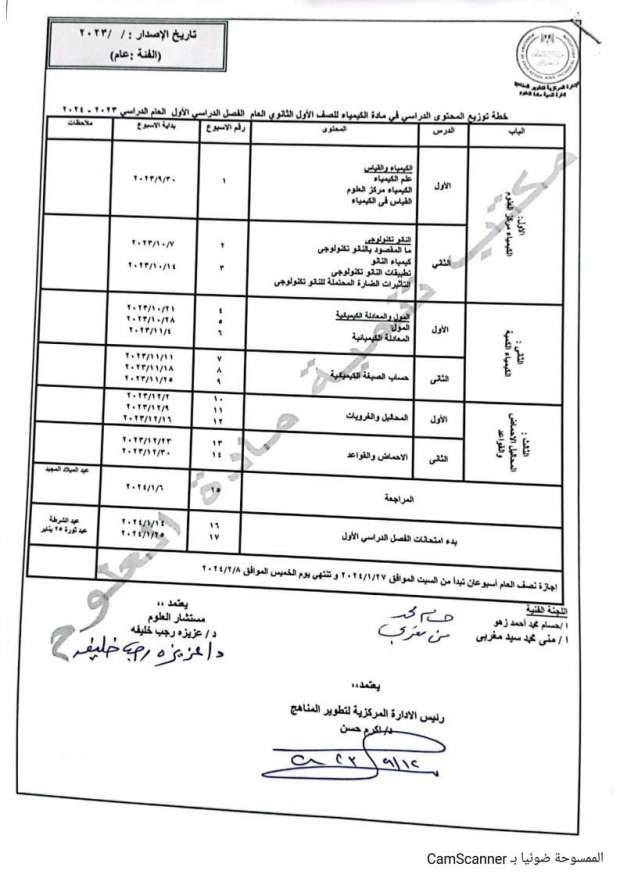 تاريخ الإصدار : / /٢٠٢٣
(الفئة :عام)
الإدارة المركزية لتطوير المناهج
إدارة تنمية مادة العلوم
خطة توزيع المحتوى الدراسي في مادة الكيمياء للصف الأول الثانوي العام الفصل الدراسي الأول العام الدراسي ٢٠٢٣ - ٢٠٢٤
الباب الدرس المحتوى رقم الاسبوع بداية الاسبوع ملاحظات
الأول: الكيمياء مركز العلوم
الأول
الكيمياء والقياس
علم الكيمياء
الكيمياء مركز العلوم
القياس في الكيمياء
١ ٢٠٢٣/٩/٣٠
الثاني
النانو تكنولوجي
ما المقصود بالنانو تكنولوجي
كيمياء النانو
تطبيقات النانو تكنولوجي
التأثيرات الضارة المحتملة للنانو تكنولوجي
٢ ٢٠٢٣/١٠/٧
٣ ٢٠٢٣/١٠/١٤
الثاني : الكيمياء الكمية
الأول
المول والمعادلة الكيميائية
المول
المعادلة الكيميائية
٤ ٢٠٢٣/١٠/٢١
٥ ٢٠٢٣/١٠/٢٨
٦ ٢٠٢٣/١١/٤
الثاني
حساب الصيغة الكيميائية
٧ ٢٠٢٣/١١/١١
٨ ٢٠٢٣/١١/١٨
٩ ٢٠٢٣/١١/٢٥
الثالث : المحاليل الاحماض والقواعد
الأول
المحاليل والغرويات
١٠ ٢٠٢٣/١٢/٢
١١ ٢٠٢٣/١٢/٩
١٢ ٢٠٢٣/١٢/١٦
الثاني
الاحماض والقواعد
١٣ ٢٠٢٣/١٢/٢٣
١٤ ٢٠٢٣/١٢/٣٠
المراجعة ١٥ ٢٠٢٤/١/٦ عيد الميلاد المجيد
بدء امتحانات الفصل الدراسي الأول
١٦ ٢٠٢٤/١/١٤ عيد الشرطة
١٧ ٢٠٢٤/١/٢٥ عيد ثورة ٢٥ يناير
إجازة نصف العام أسبوعان تبدأ من السبت الموافق ٢٠٢٤/١/٢٧ و تنتهي يوم الخميس الموافق ٢٠٢٤/٢/٨
مكتب تنمية مادة العلوم
اللجنة الفنية
ا/حسام محمد أحمد زهو
ا / منى محمد سيد مغربي
حسام محمد
يعتمد ،،
مستشار العلوم
د/ عزيزه رجب خليفه
د/ عزيزه رجب خليفه
يعتمد،،
رئيس الادارة المركزية لتطوير المناهج
د/ اكرم حسن
الممسوحة ضوئيا بـ CamScanner